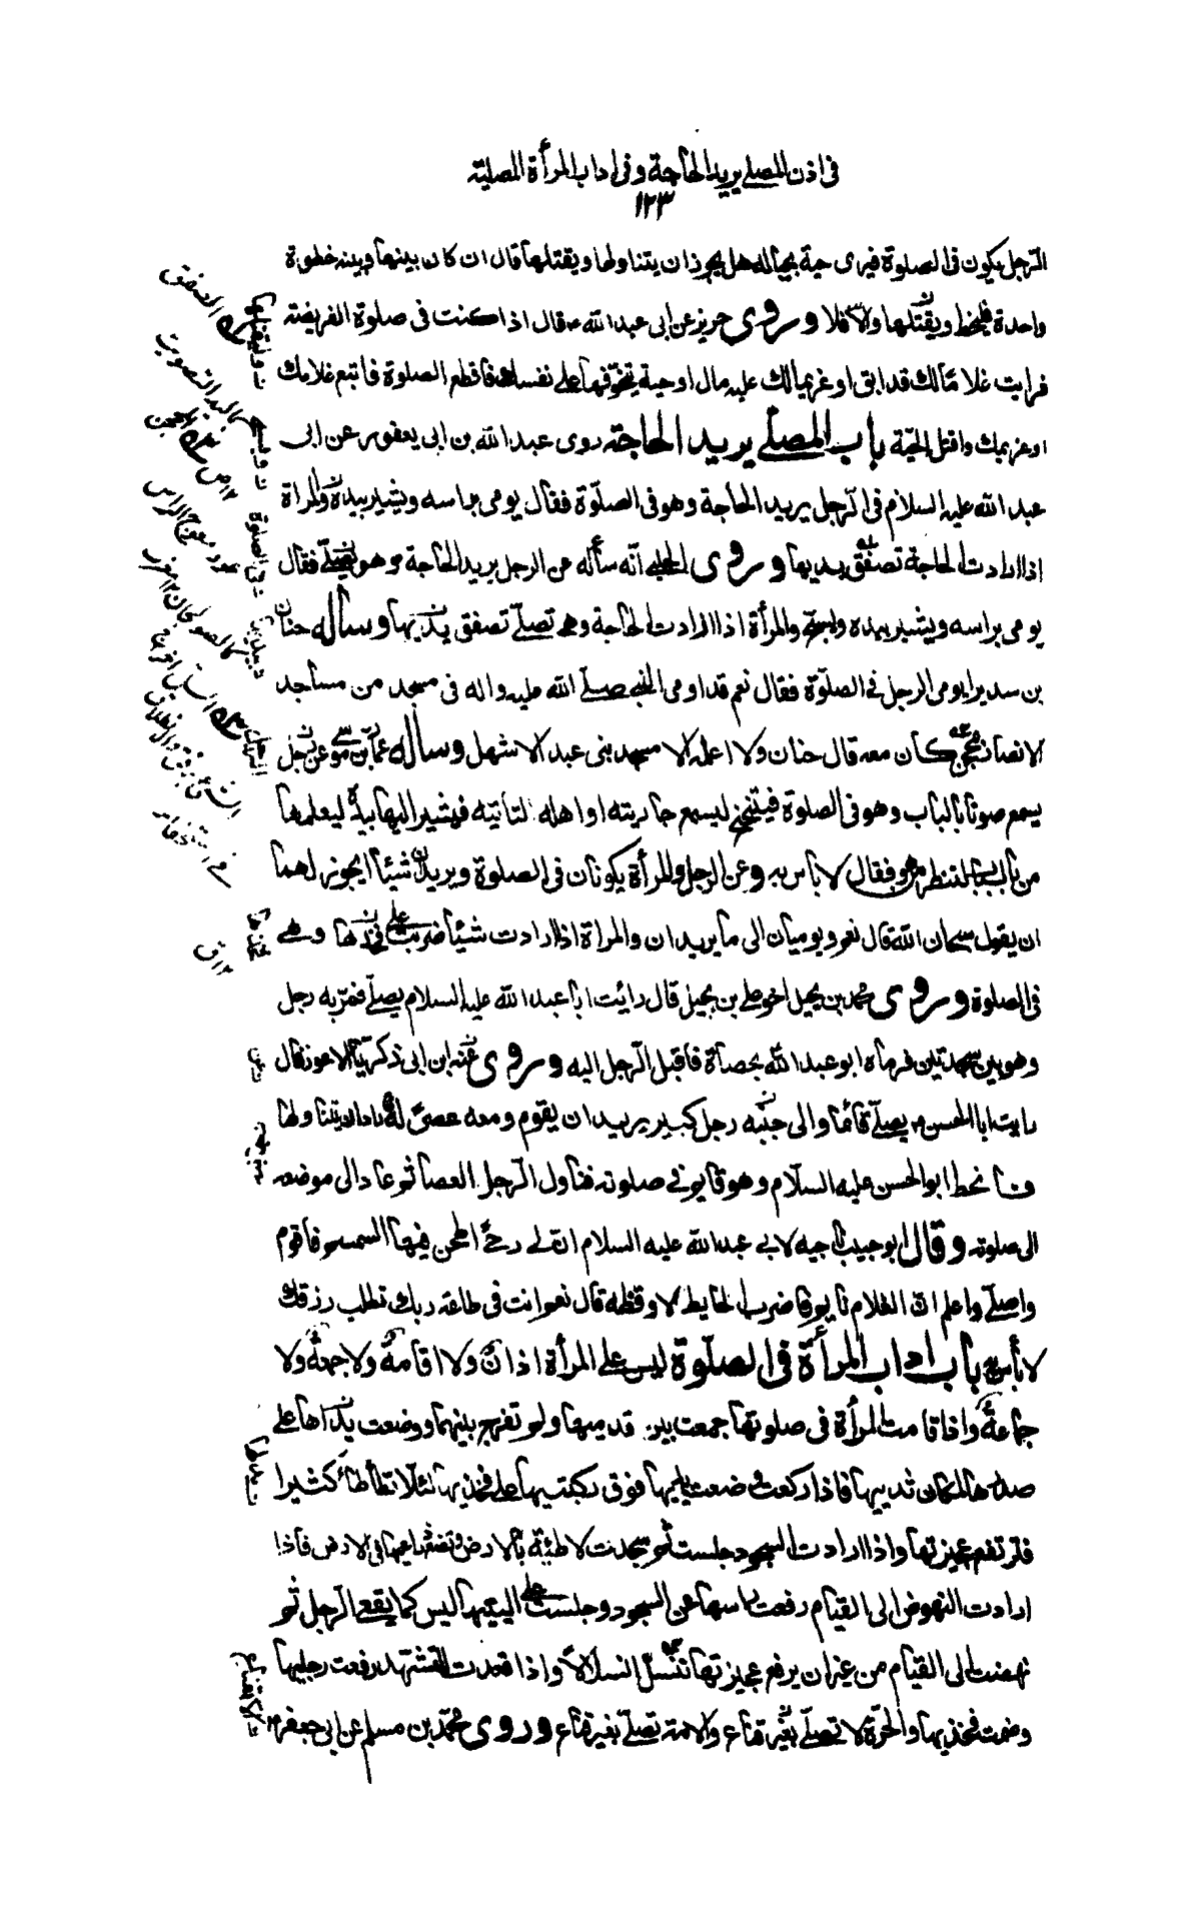 فى اذن المصلى يريد الحاجة وفى اداب المرأة المصلية
١٢٣
الرجل يكون فى الصلوة فيرى حية بحياله هل يجوز ان يتناولها ويقتلها قال ان كان بينها وبينه خطوة
واحدة فليخط ويقتلها والا فلا وروى حريز عن ابى عبد الله ع قال اذا كنت فى صلوة الفريضة
فرايت غلاما لك قد ابق او غريما لك عليه مال او حية تخوفها على نفسك فاقطع الصلوة فاتبع غلامك
او غريمك واقتل الحية باب المصلى يريد الحاجة روى عبد الله بن ابى يعفور عن ابى
عبد الله عليه السلام فى الرجل يريد الحاجة وهو فى الصلوة فقال يومى براسه ويشير بيده والمراة
اذا ارادت الحاجة تصفق بيديها وروى الحلبى انه سأله عن الرجل يريد الحاجة وهو يصلى فقال
يومى براسه ويشير بيده ويسبح والمرأة اذا ارادت الحاجة وهى تصلى تصفق بيديها وسأله حنان
بن سدير ايومى الرجل فى الصلوة فقال نعم قد اومى النبى صلى الله عليه واله فى مسجد من مساجد
الانصار بمحجن كان معه قال حنان ولا اعلمه الا مسجد بنى عبد الاشهل وسأله عمار بن موسى عن رجل
يسمع صوتا بالباب وهو فى الصلوة فيتنحنح ليسمع جاريته او اهله لتاتيه فيشير اليها بيده ليعلمها
من بالباب لتنظر من هو فقال لا باس به وعن الرجل والمرأة يكونان فى الصلوة ويريدان شيئا ايجوز لهما
ان يقول سبحان الله قال نعم ويوميان الى ما يريدان والمراة اذا ارادت شيئا ضربت على فخذها وهى
فى الصلوة وروى محمد بن بجيل اخو على بن بجيل قال رائيت ابا عبد الله عليه السلام يصلى فمر به رجل
وهو بين سجدتين فرماه ابو عبد الله بحصاة فاقبل الرجل اليه وروى عنه ابن ابى ذكريا الاعور قال
رايت ابا الحسن ع يصلى قائما والى جنبه رجل كبير يريد ان يقوم ومعه عصى له فاراد ان يتناولها
فانحط ابو الحسن عليه السلام وهو قايم فى صلوته فناول الرجل العصا ثم عاد الى موضعه
الى صلوته وقال ابو حبيب ناجية لابى عبد الله عليه السلام ان لى رحىً اطحن فيها السمسم فاقوم
واصلى واعلم ان الغلام نايم فاضرب الحايط لاوقظه قال نعم وانت فى طاعة ربك تطلب رزقك
لا بأس به باب اداب المرأة فى الصلوة ليس على المرأة اذان ولا اقامة ولا جمعة ولا
جماعة واذا قامت المرأة فى صلوتها جمعت بين قدميها ولم تفرج بينهما ووضعت يديها على
صدرها لمكان ثدييها فاذا ركعت وضعت يديها فوق ركبتيها على فخذيها لئلا تطأطأ كثيرا
فترتفع عجيزتها واذا ارادت السجود جلست ثم سجدت لاطئة بالارض وتضع ذراعيها فى الارض فاذا
ارادت النهوض الى القيام رفعت راسها من السجود وجلست على اليتيها ليس كما يقعى الرجل ثم
نهضت الى القيام من غير ان يرفع عجيزتها تنسل انسلالا واذا قعدت للتشهد رفعت رجليها
وضمت فخذيها والحرة لا تصلى بغير قناع والامة تصلى بغير قناع وروى محمد بن مسلم عن ابى جعفر ع